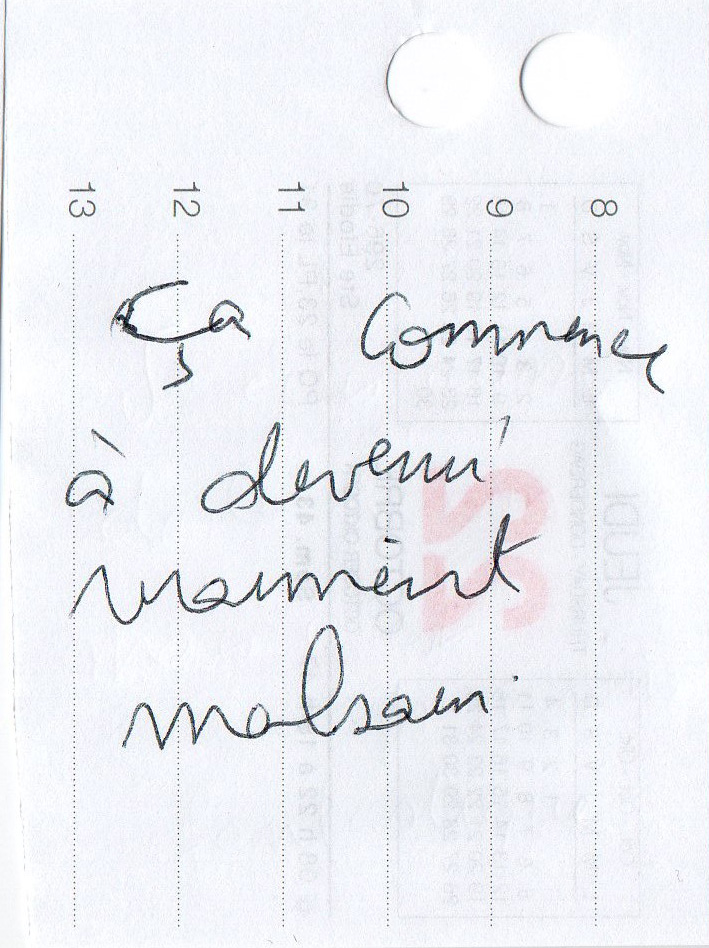 13
12
11
10
9
8
Ça commence
à devenir
vraiment
malsain.